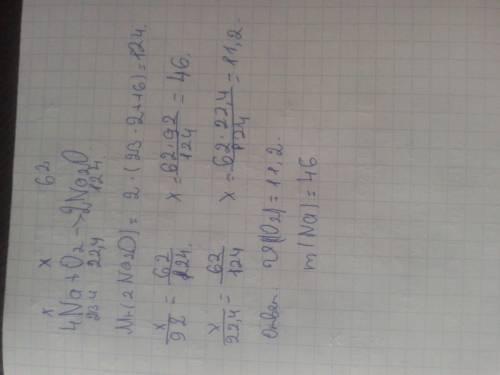 x x 62
4Na+O₂→2Na₂O
23·4 22,4 124
Mr(2Na₂O)= 2·(23·2+16)=124.
x/92 = 62/124. x = 62·92/124 = 46.
x/22,4 = 62/124 x = 62·22,4/124 = 11,2.
Ответ. V(O₂)=11,2.
m(Na)=46